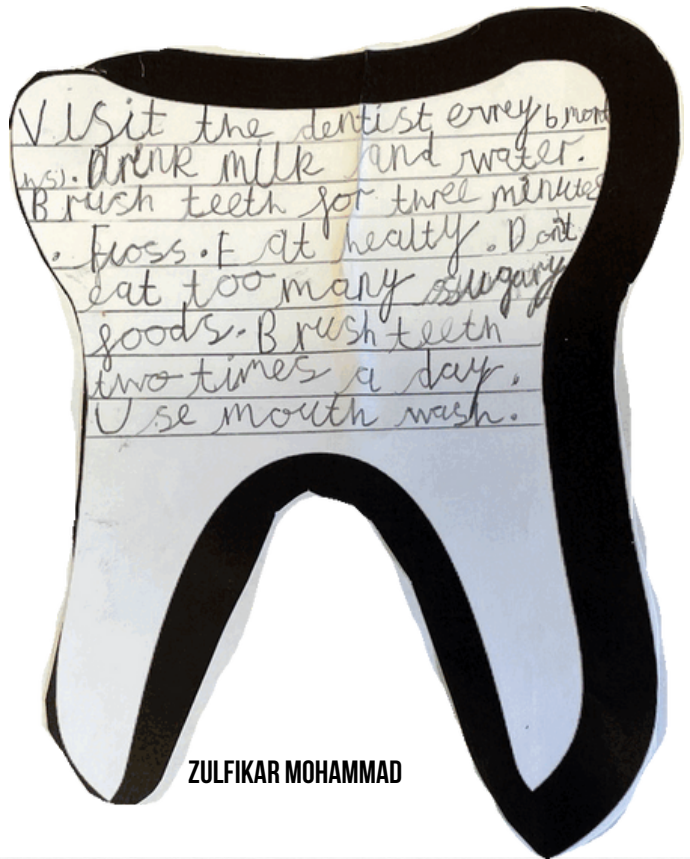 Visit the dentist ervey 6 mont
hs). Drink milk and water.
Brush teeth for three minutes
. Fross. Eat healty. Don't
eat too many sugary
foods. Brush teeth
two times a day.
Use mouth wash.
ZULFIKAR MOHAMMAD